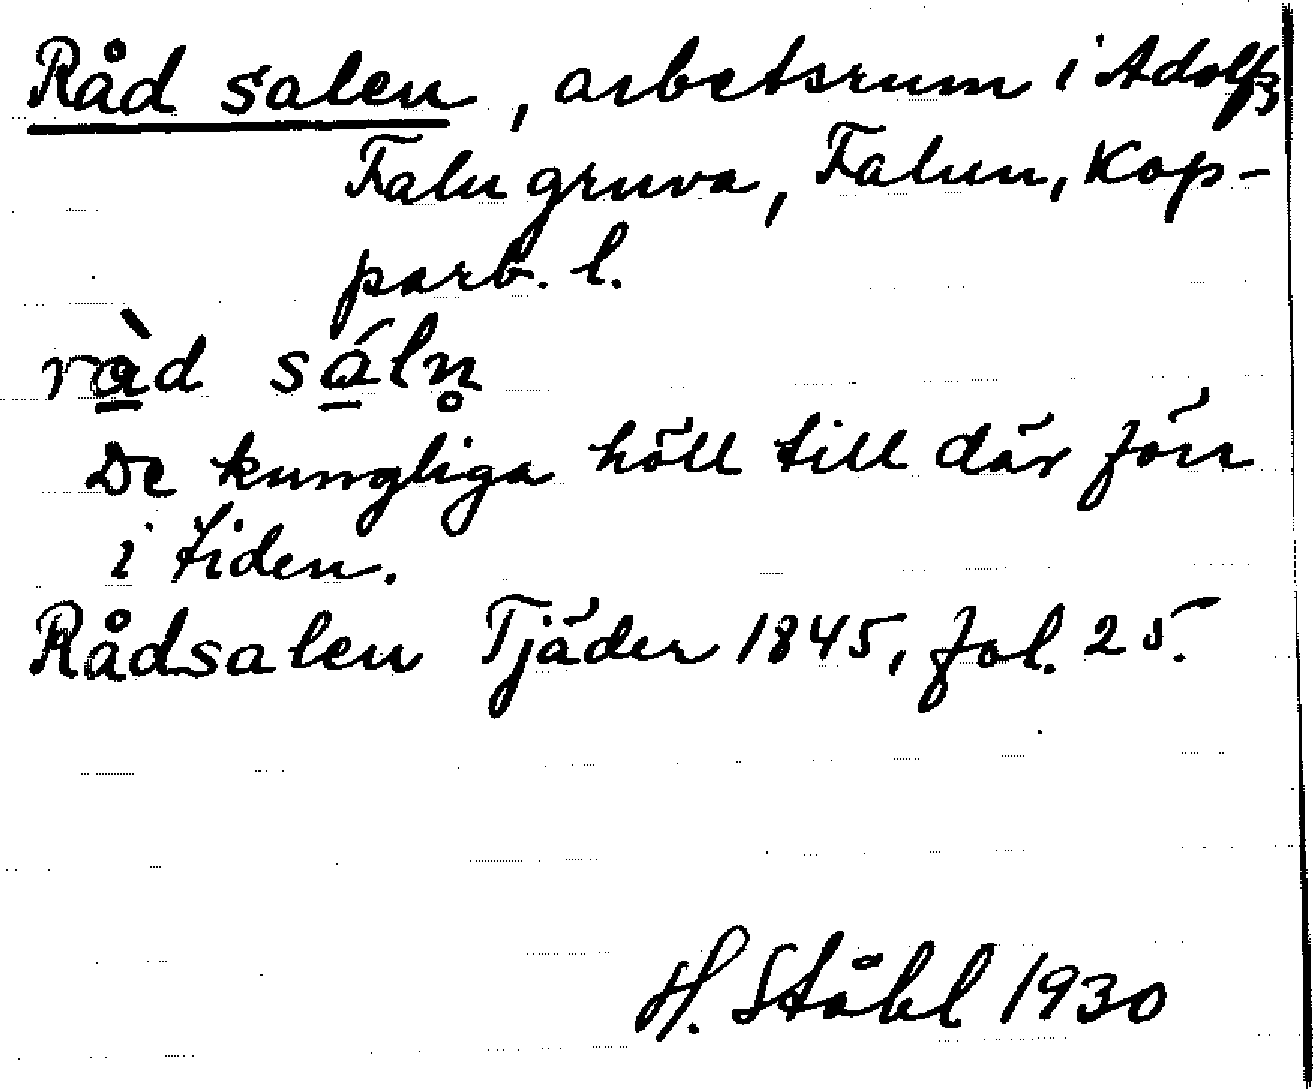 Råd salen, arbetsrum i Adolfs,
Falu gruva, Falun, Kop-
parb. l.
rå̀d sáln̥
De kungliga höll till där förr
i tiden.
Rådsalen Tjäder 1845, fol. 25.
H. Ståhl 1930